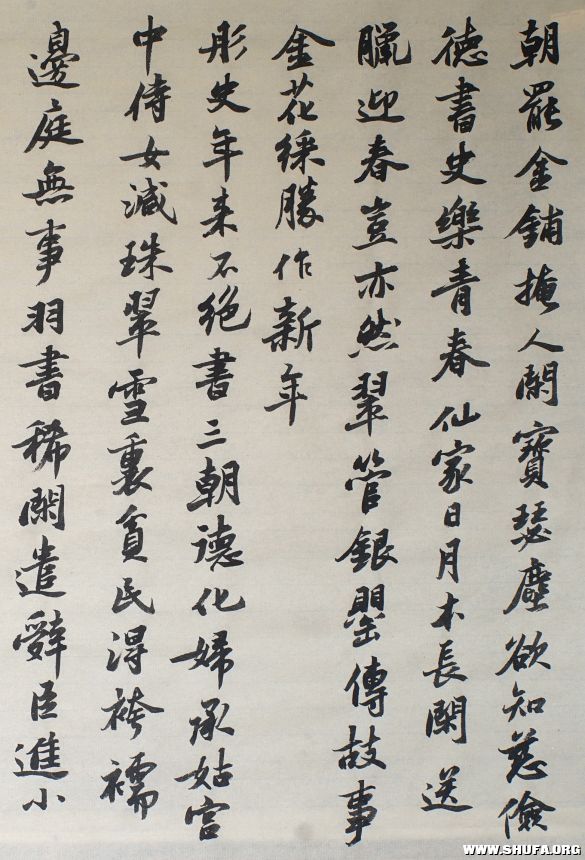 朝罷金鋪掩人閑寶瑟塵欲知慈儉
德書史樂青春仙家日月本長閑送
臘迎春豈亦然翠管銀罌傳故事
金花綵勝作新年
彤史年来不絕書三朝德化婦承姑宮
中侍女減珠翠雪裏貧民得袴襦
邊庭無事羽書稀閑遣辭臣進小
WWW.SHUFA.ORG